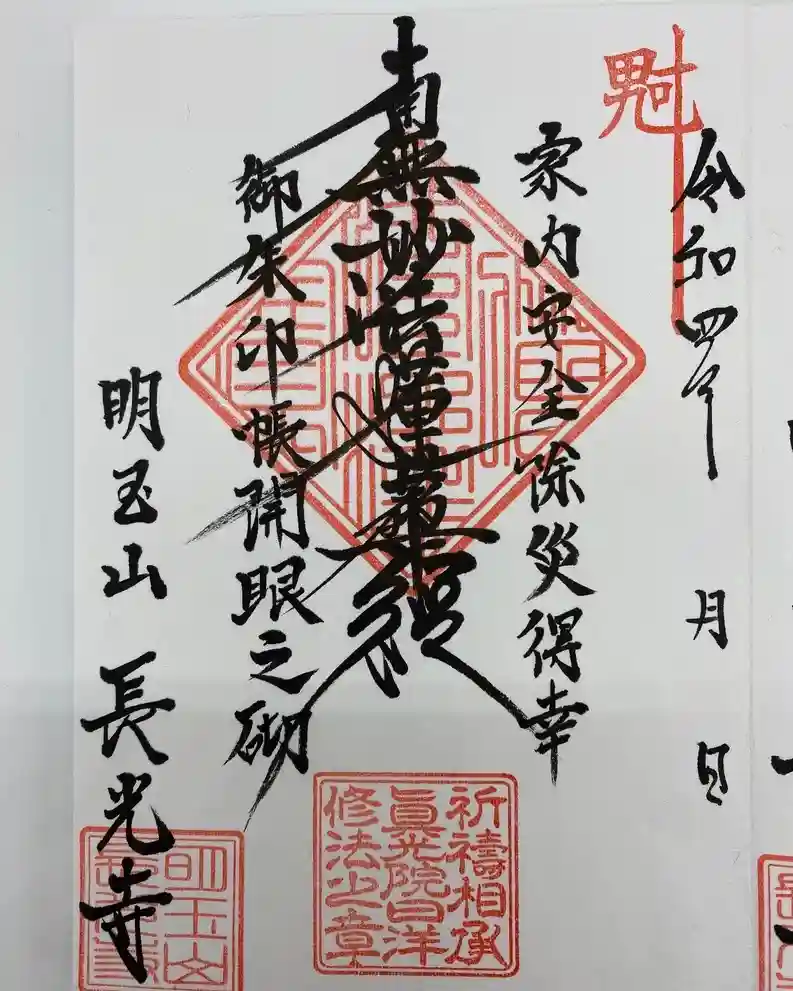 令和四年 月 日
家内安全除災得幸
南無妙法蓮華経
御朱印帳開眼之砌
明玉山 長光寺
祈禱相承
眞光院日洋
修法之章
明玉山